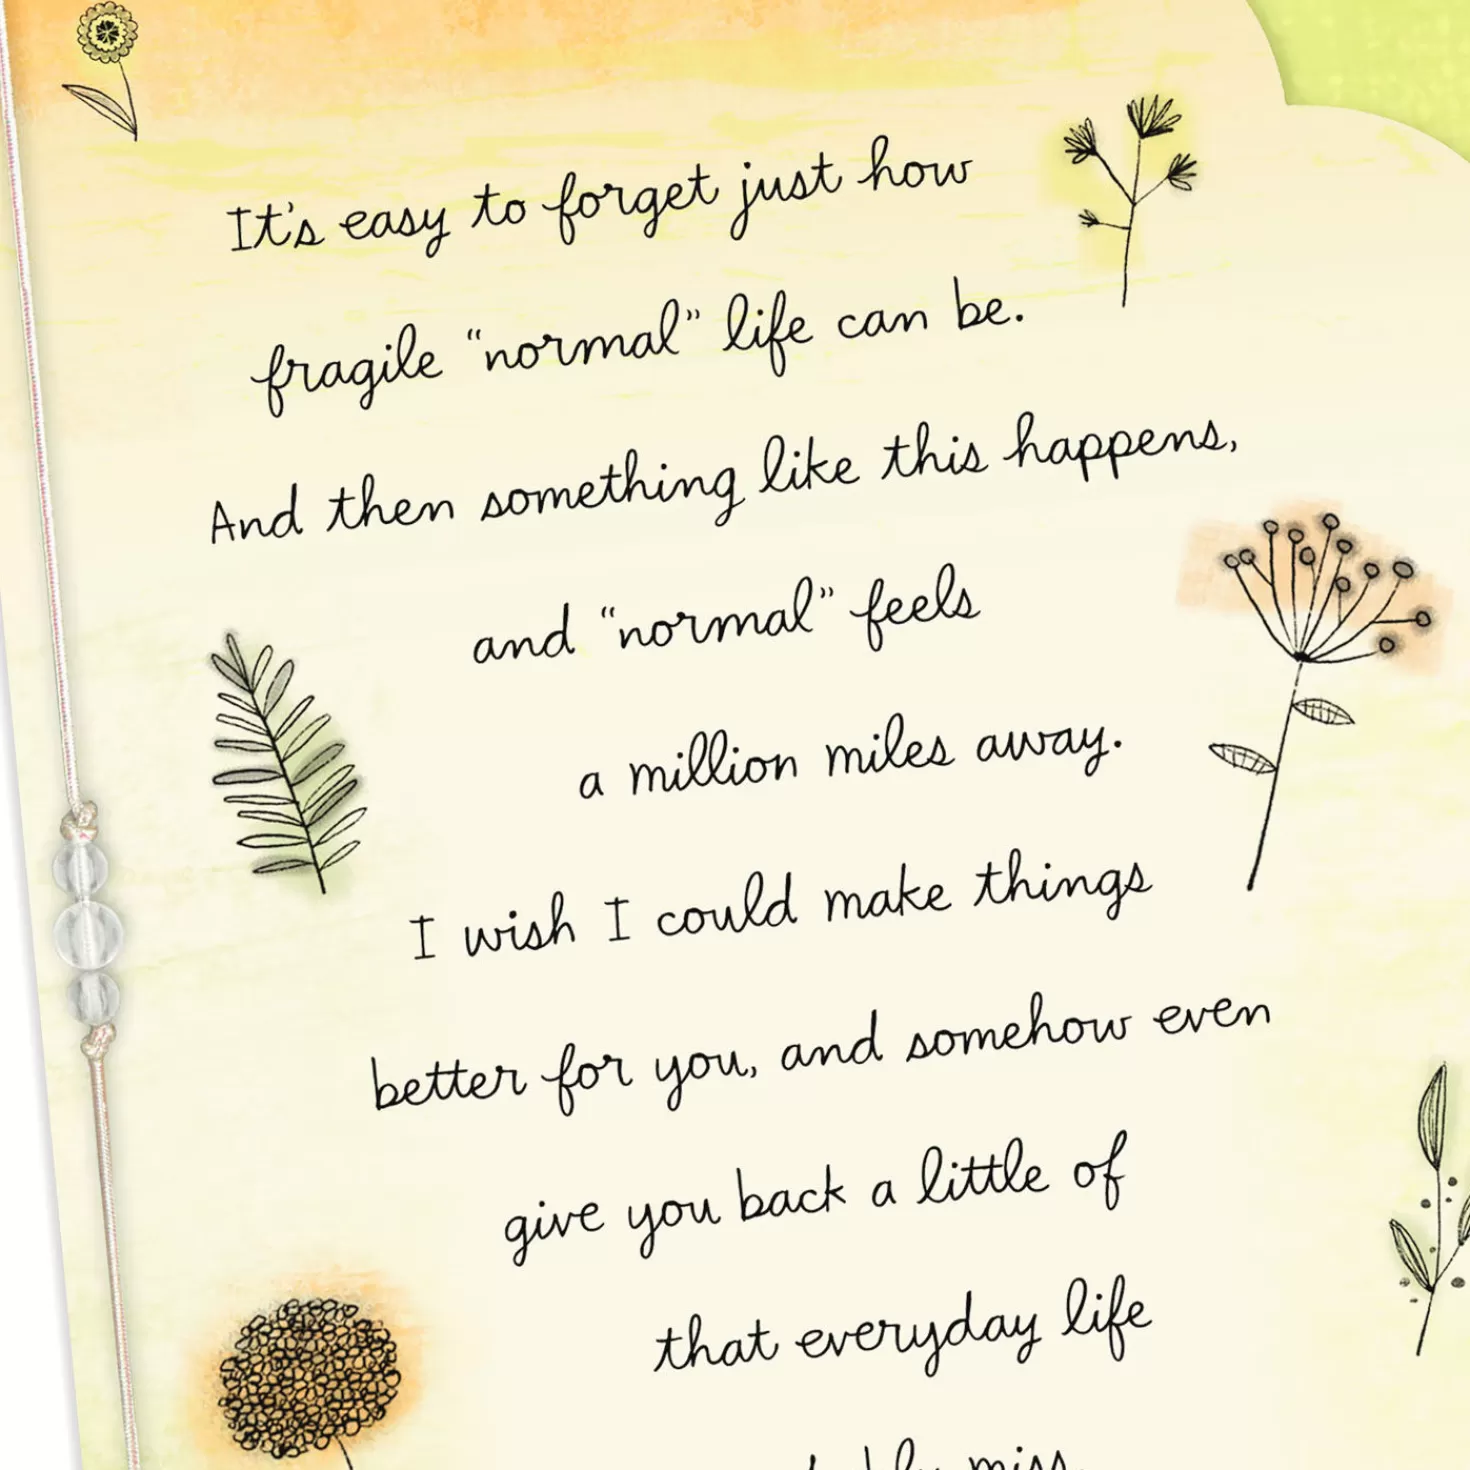 It's easy to forget just how
fragile “normal” life can be.
And then something like this happens,
and “normal” feels
a million miles away.
I wish I could make things
better for you, and somehow even
give you back a little of
that everyday life
miss.